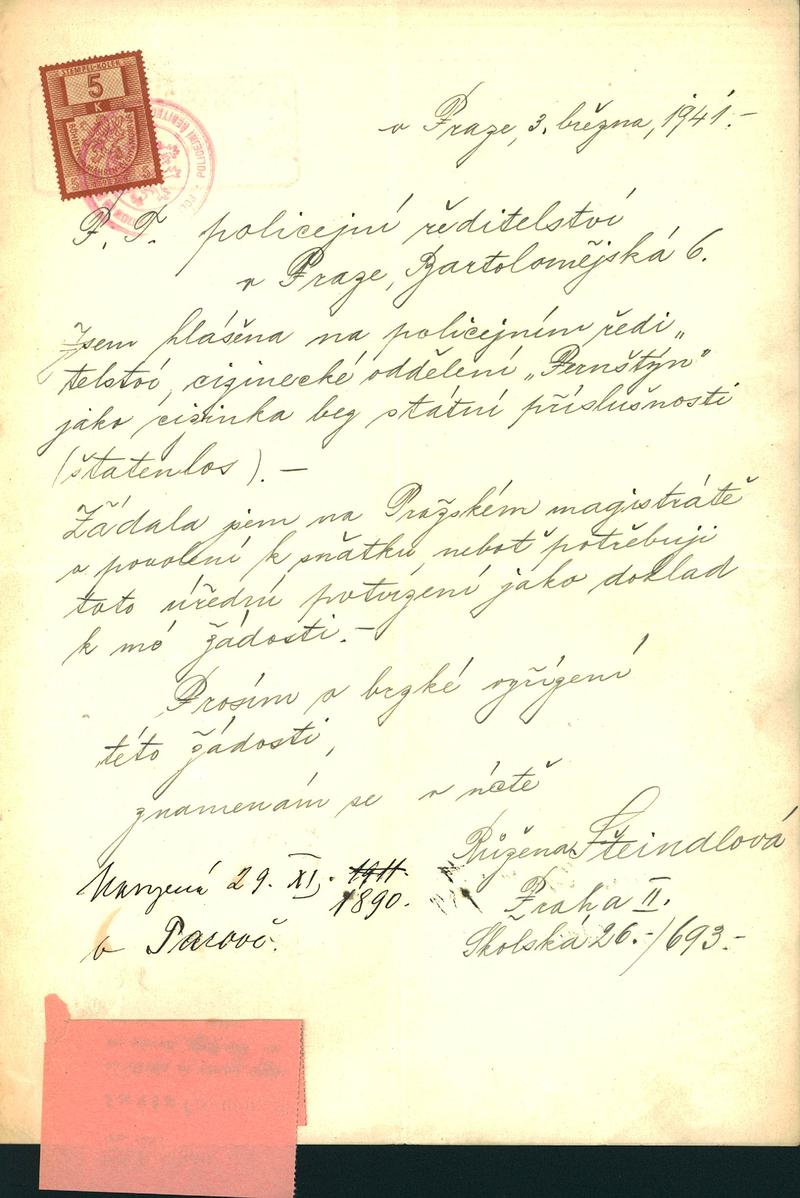 STEMPEL-KOLEK
5
K
v Praze, 3. března, 1941.-
P. T. policejní ředitelství
v Praze, Bartolomějská 6.
Jsem hlášena na policejním ředi„
telství, cizinecké oddělení „Pernštýn"
jako cizinka bez státní příslušnosti
(štatenlos). –
Žádala jsem na Pražském magistrátě
o povolení k sňatku, neboť potřebuji
toto úřední potvrzení jako doklad
k mé žádosti. –
Prosím o brzké vyřízení
této žádosti,
znamenám se v úctě
Růžena Šteindlová
Narozená 29. XI. 1911.
1890.
Praha II.
v
Školská 26.-/693.-